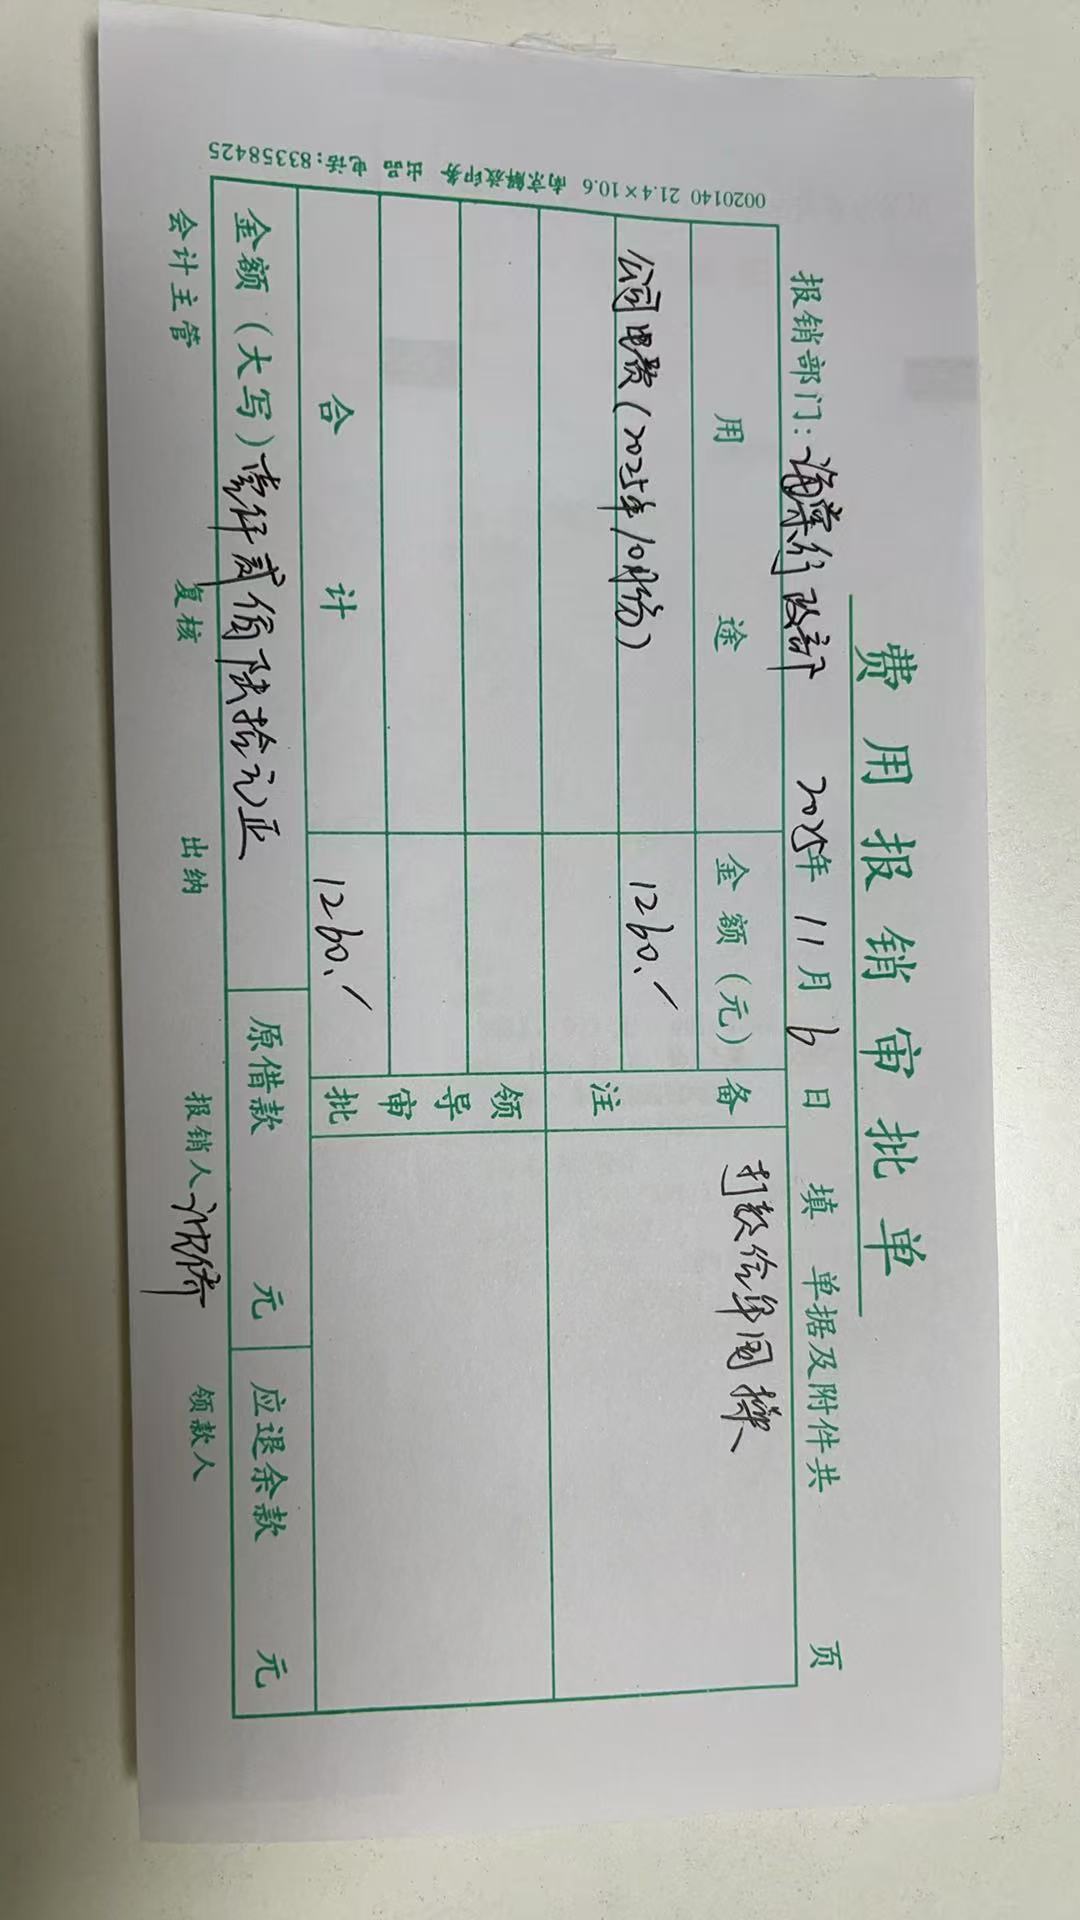 费用报销审批单
报销部门：海棠行政部 2025年 11月 6日 填 单据及附件共 页
用途 金额（元） 备注 打款给单国
公司电费（2025年10月份） 1260.
领导审批
合计 1260.
金额（大写）壹仟贰佰陆拾元正 原借款 元 应退余款 元
会计主管 复核 出纳 报销人 领款人
0020140 21.4×10.6 南京解放印务 出品 电话：83358425